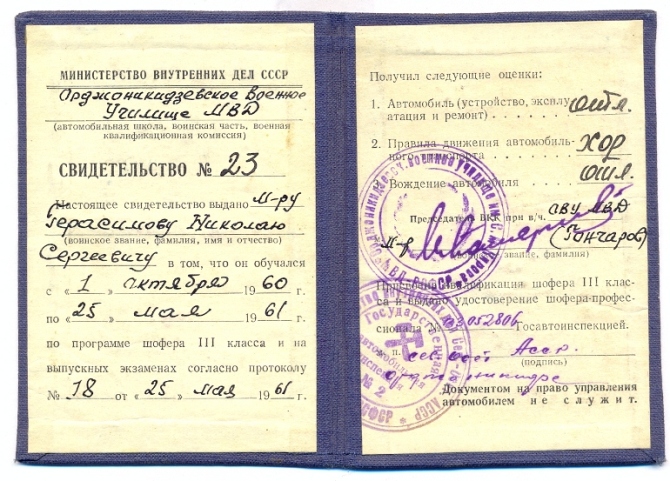 МИНИСТЕРСТВО ВНУТРЕННИХ ДЕЛ СССР
Орджоникидзевское Военное
Училище МВД
(автомобильная школа, воинская часть, военная
квалификационная комиссия)
СВИДЕТЕЛЬСТВО № 23
Настоящее свидетельство выдано М-ру
Герасимову Николаю
(воинское звание, фамилия, имя и отчество)
Сергеевичу в том, что он обучался
с «1» октября 1960 г.
по «25» мая 1961 г.
по программе шофера III класса и на
выпускных экзаменах согласно протоколу
№ 18 от «25» мая 1961 г.
Получил следующие оценки:
1. Автомобиль (устройство, эксплу-
атация и ремонт) отл.
2. Правила движения автомобиль-
ного транспорта ХОР
Вождение автомобиля отл.
Председатель ВКК при в/ч. ОВУ МВД
М-р (Гончаров)
звание, фамилия)
Присвоена квалификации шофера III клас-
са и выдано удостоверение шофера-профес-
сионала № 052806 Госавтоинспекцией.
(подпись)
Документом на право управления
автомобилем не служит.